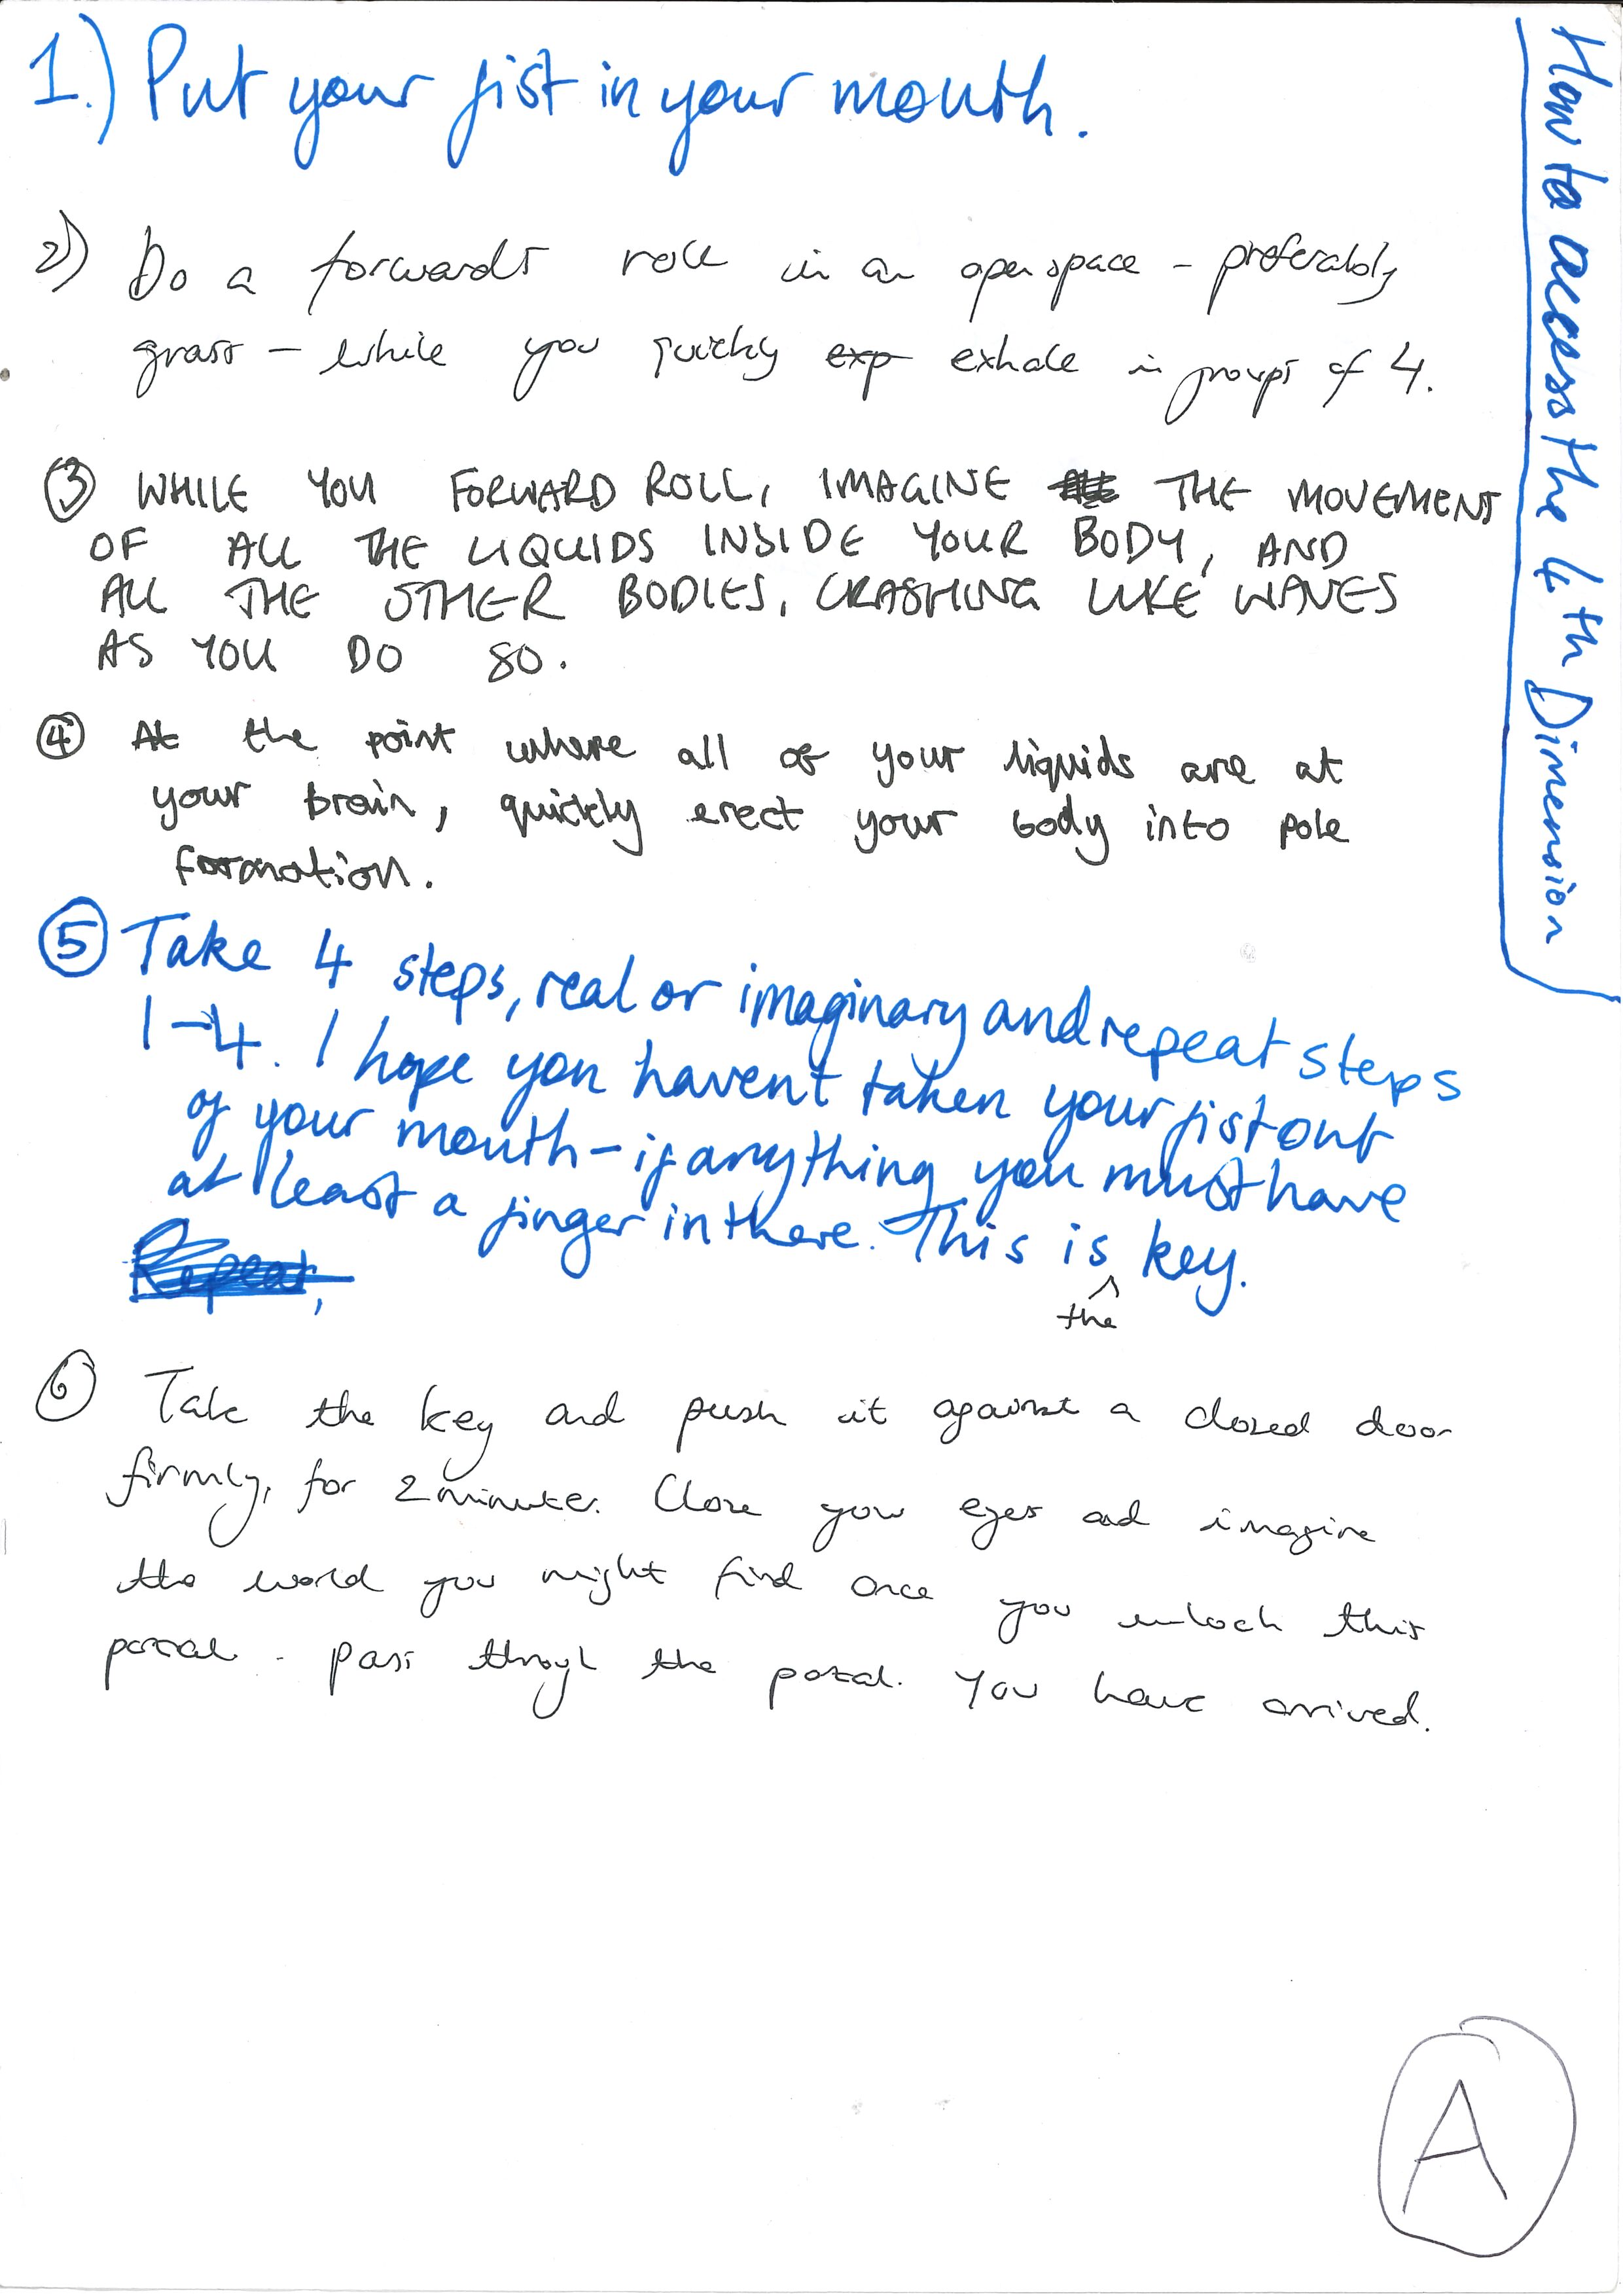 How to access the 4th Dimension
1.) Put your fist in your mouth.
2) Do a forwards roll in an open space - preferably
grass - while you quickly exp exhale in groups of 4.
③ WHILE YOU FORWARD ROLL, IMAGINE THE MOVEMENT
OF ALL THE LIQUIDS INSIDE YOUR BODY, AND
ALL THE OTHER BODIES, CRASHING LIKE WAVES
AS YOU DO SO.
④ At the point where all of your liquids are at
your brain, quickly erect your body into pole
formation.
⑤ Take 4 steps, real or imaginary and repeat steps
1-4. I hope you havent taken your fist out
of your mouth - if anything you must have
at least a finger in there. This is key.
Repeat,
the
⑥ Take the key and push it against a closed door
firmly, for 2 minutes. Close your eyes and imagine
the world you might find once you unlock this
portal - pass through the portal. You have arrived.
A